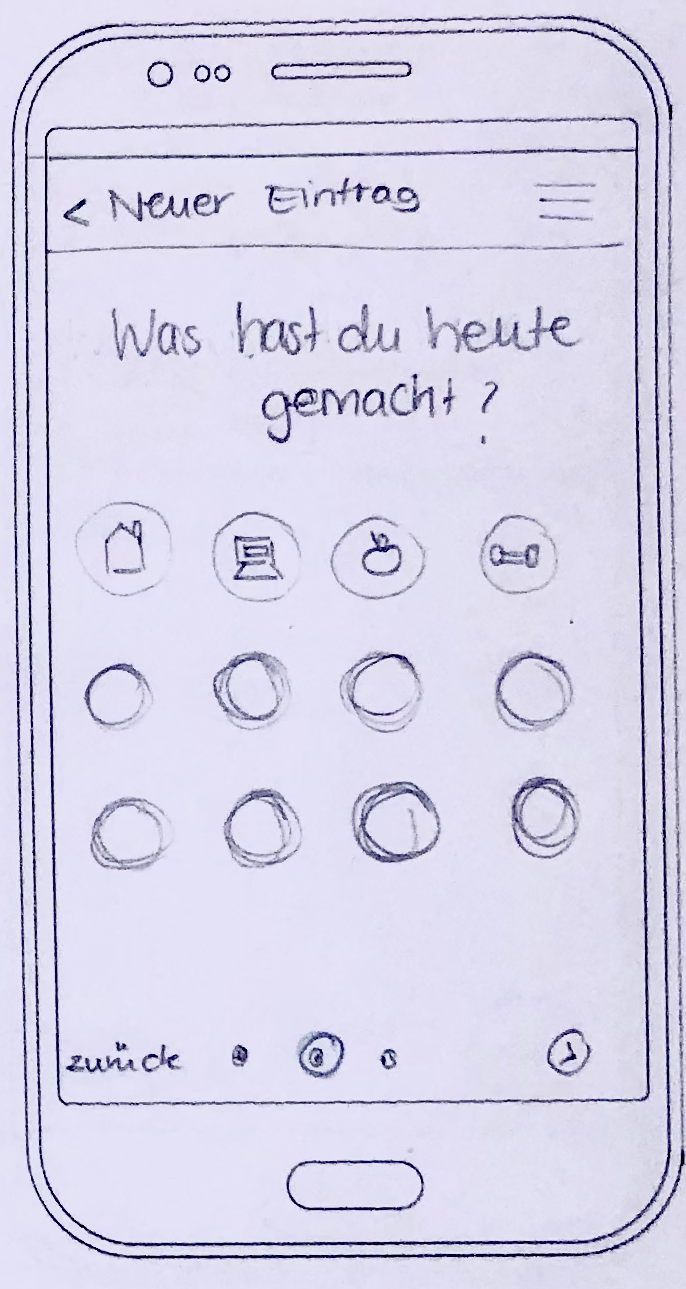 < Neuer Eintrag
Was hast du heute
gemacht?
zurück